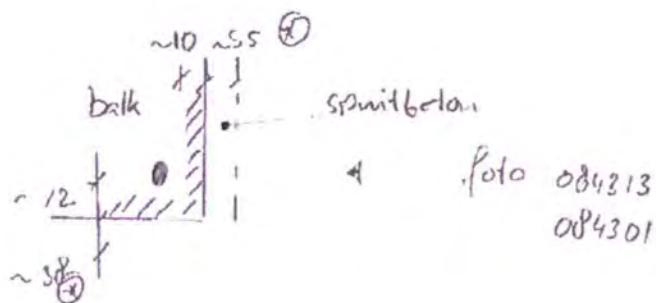 ~10 ~55 *
balk
spuitbeton
foto 084313
084301
~12
~38 *